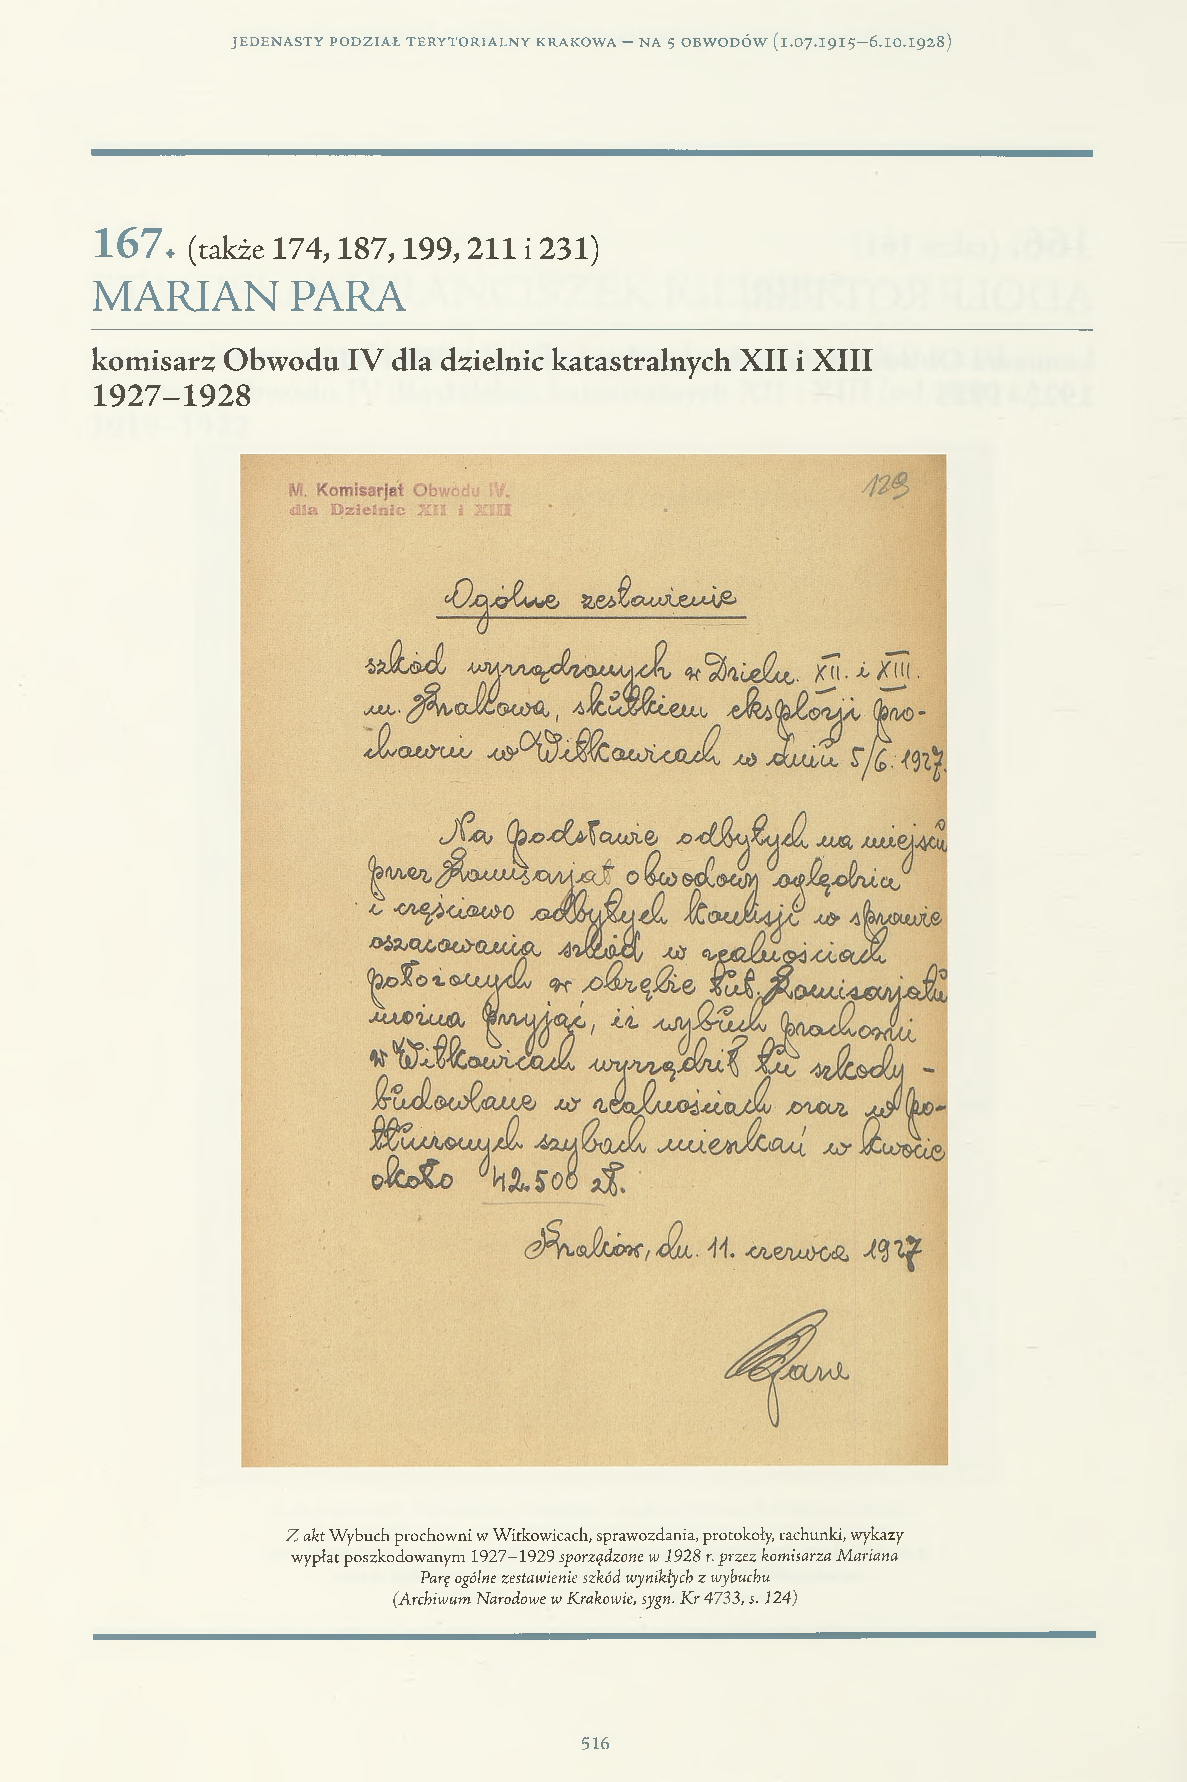 JEDENASTY PODZIAŁ TERYTORIALNY KRAKOWA — NA 5 OBWODÓW (1.07.1915—6.10.1928)
167. (także 174, 187, 199, 211 i 231)
MARIAN PARA
komisarz Obwodu IV dla dzielnic katastralnych XII i XIII
1927–1928
M. Komisarjat Obwodu IV.
dla Dzielnic XII i XIII
129
Ogólne zestawienie
szkód wyrządzonych w Dzieln. XII. i XIII.
m. Krakowa, skutkiem eksplozji pro-
chowni w Witkowicach w dniu 5/6. 1927.
Na podstawie odbytych na miejscu
przez Komisarjat obwodowy oględzin
i częściowo odbytych komisji w sprawie
oszacowania szkód w realnościach
położonych w obrębie tut. Komisarjatu
można przyjąć, iż wybuch prochowni
w Witkowicach wyrządził tu szkody -
budowlane w realnościach oraz w po-
tłuczonych szybach mieszkań w kwocie
około 42.500 zł.
Kraków, dn. 11. czerwca 1927
Z akt Wybuch prochowni w Witkowicach, sprawozdania, protokoły, rachunki, wykazy
wypłat poszkodowanym 1927–1929 sporządzone w 1928 r. przez komisarza Mariana
Parę ogólne zestawienie szkód wynikłych z wybuchu
(Archiwum Narodowe w Krakowie, sygn. Kr 4733, s. 124)
516